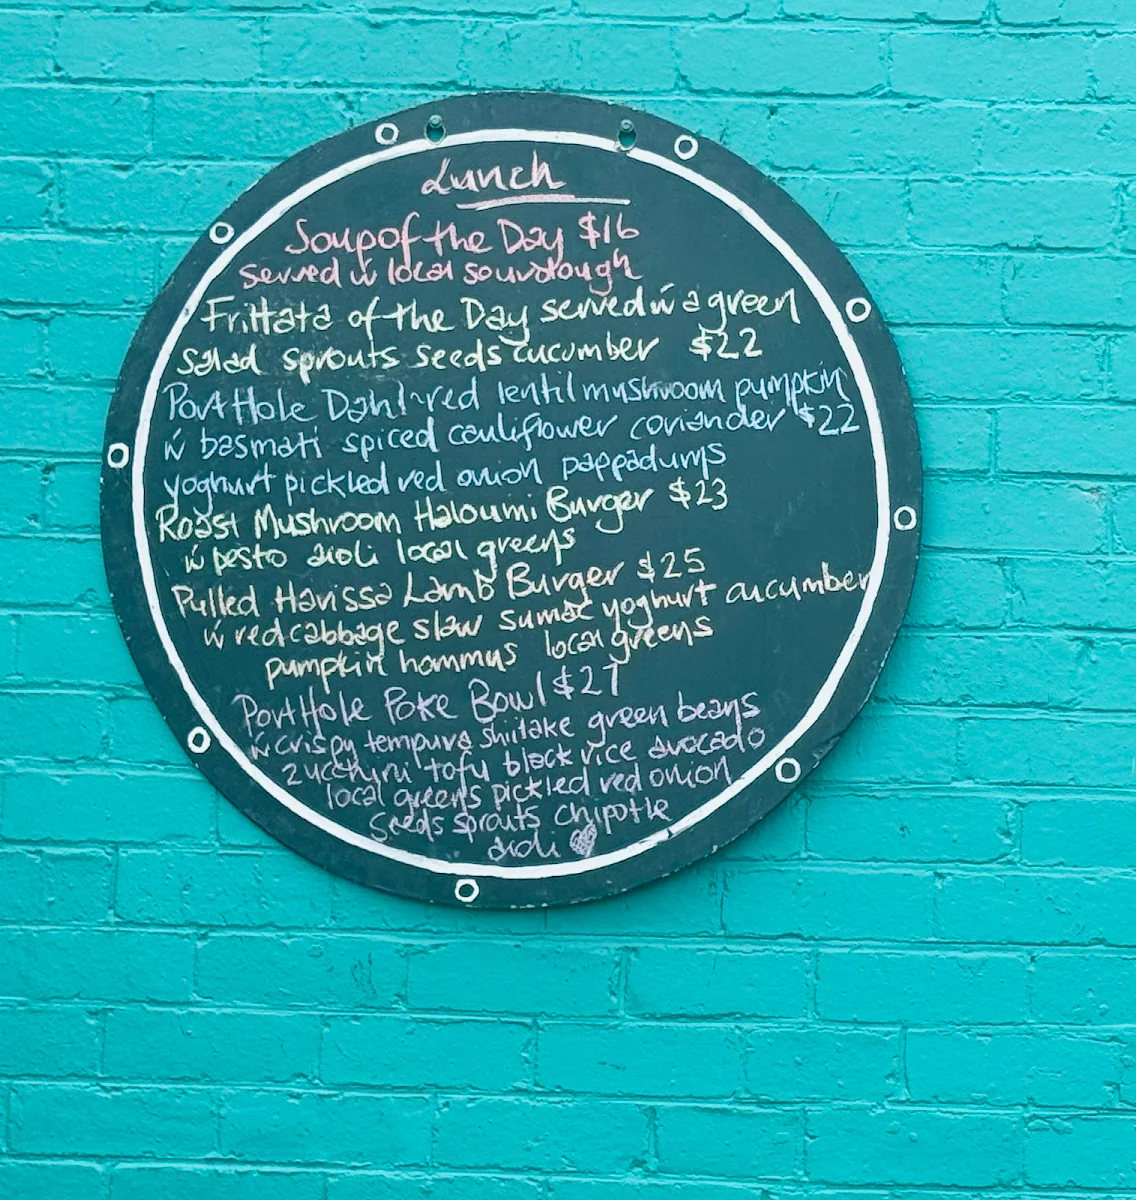 Lunch
Soup of the Day $16
Served w local sourdough
Frittata of the Day served w a green
salad sprouts seeds cucumber $22
PortHole Dahl~red lentil mushroom pumpkin
w basmati spiced cauliflower coriander $22
yoghurt pickled red onion pappadums
Roast Mushroom Haloumi Burger $23
w pesto aioli local greens
Pulled Harissa Lamb Burger $25
w red cabbage slaw sumac yoghurt cucumber
pumpkin hommus local greens
PortHole Poke Bowl $27
w crispy tempura shiitake green beans
zucchini tofu black rice avocado
local greens pickled red onion
seeds sprouts chipotle
aioli